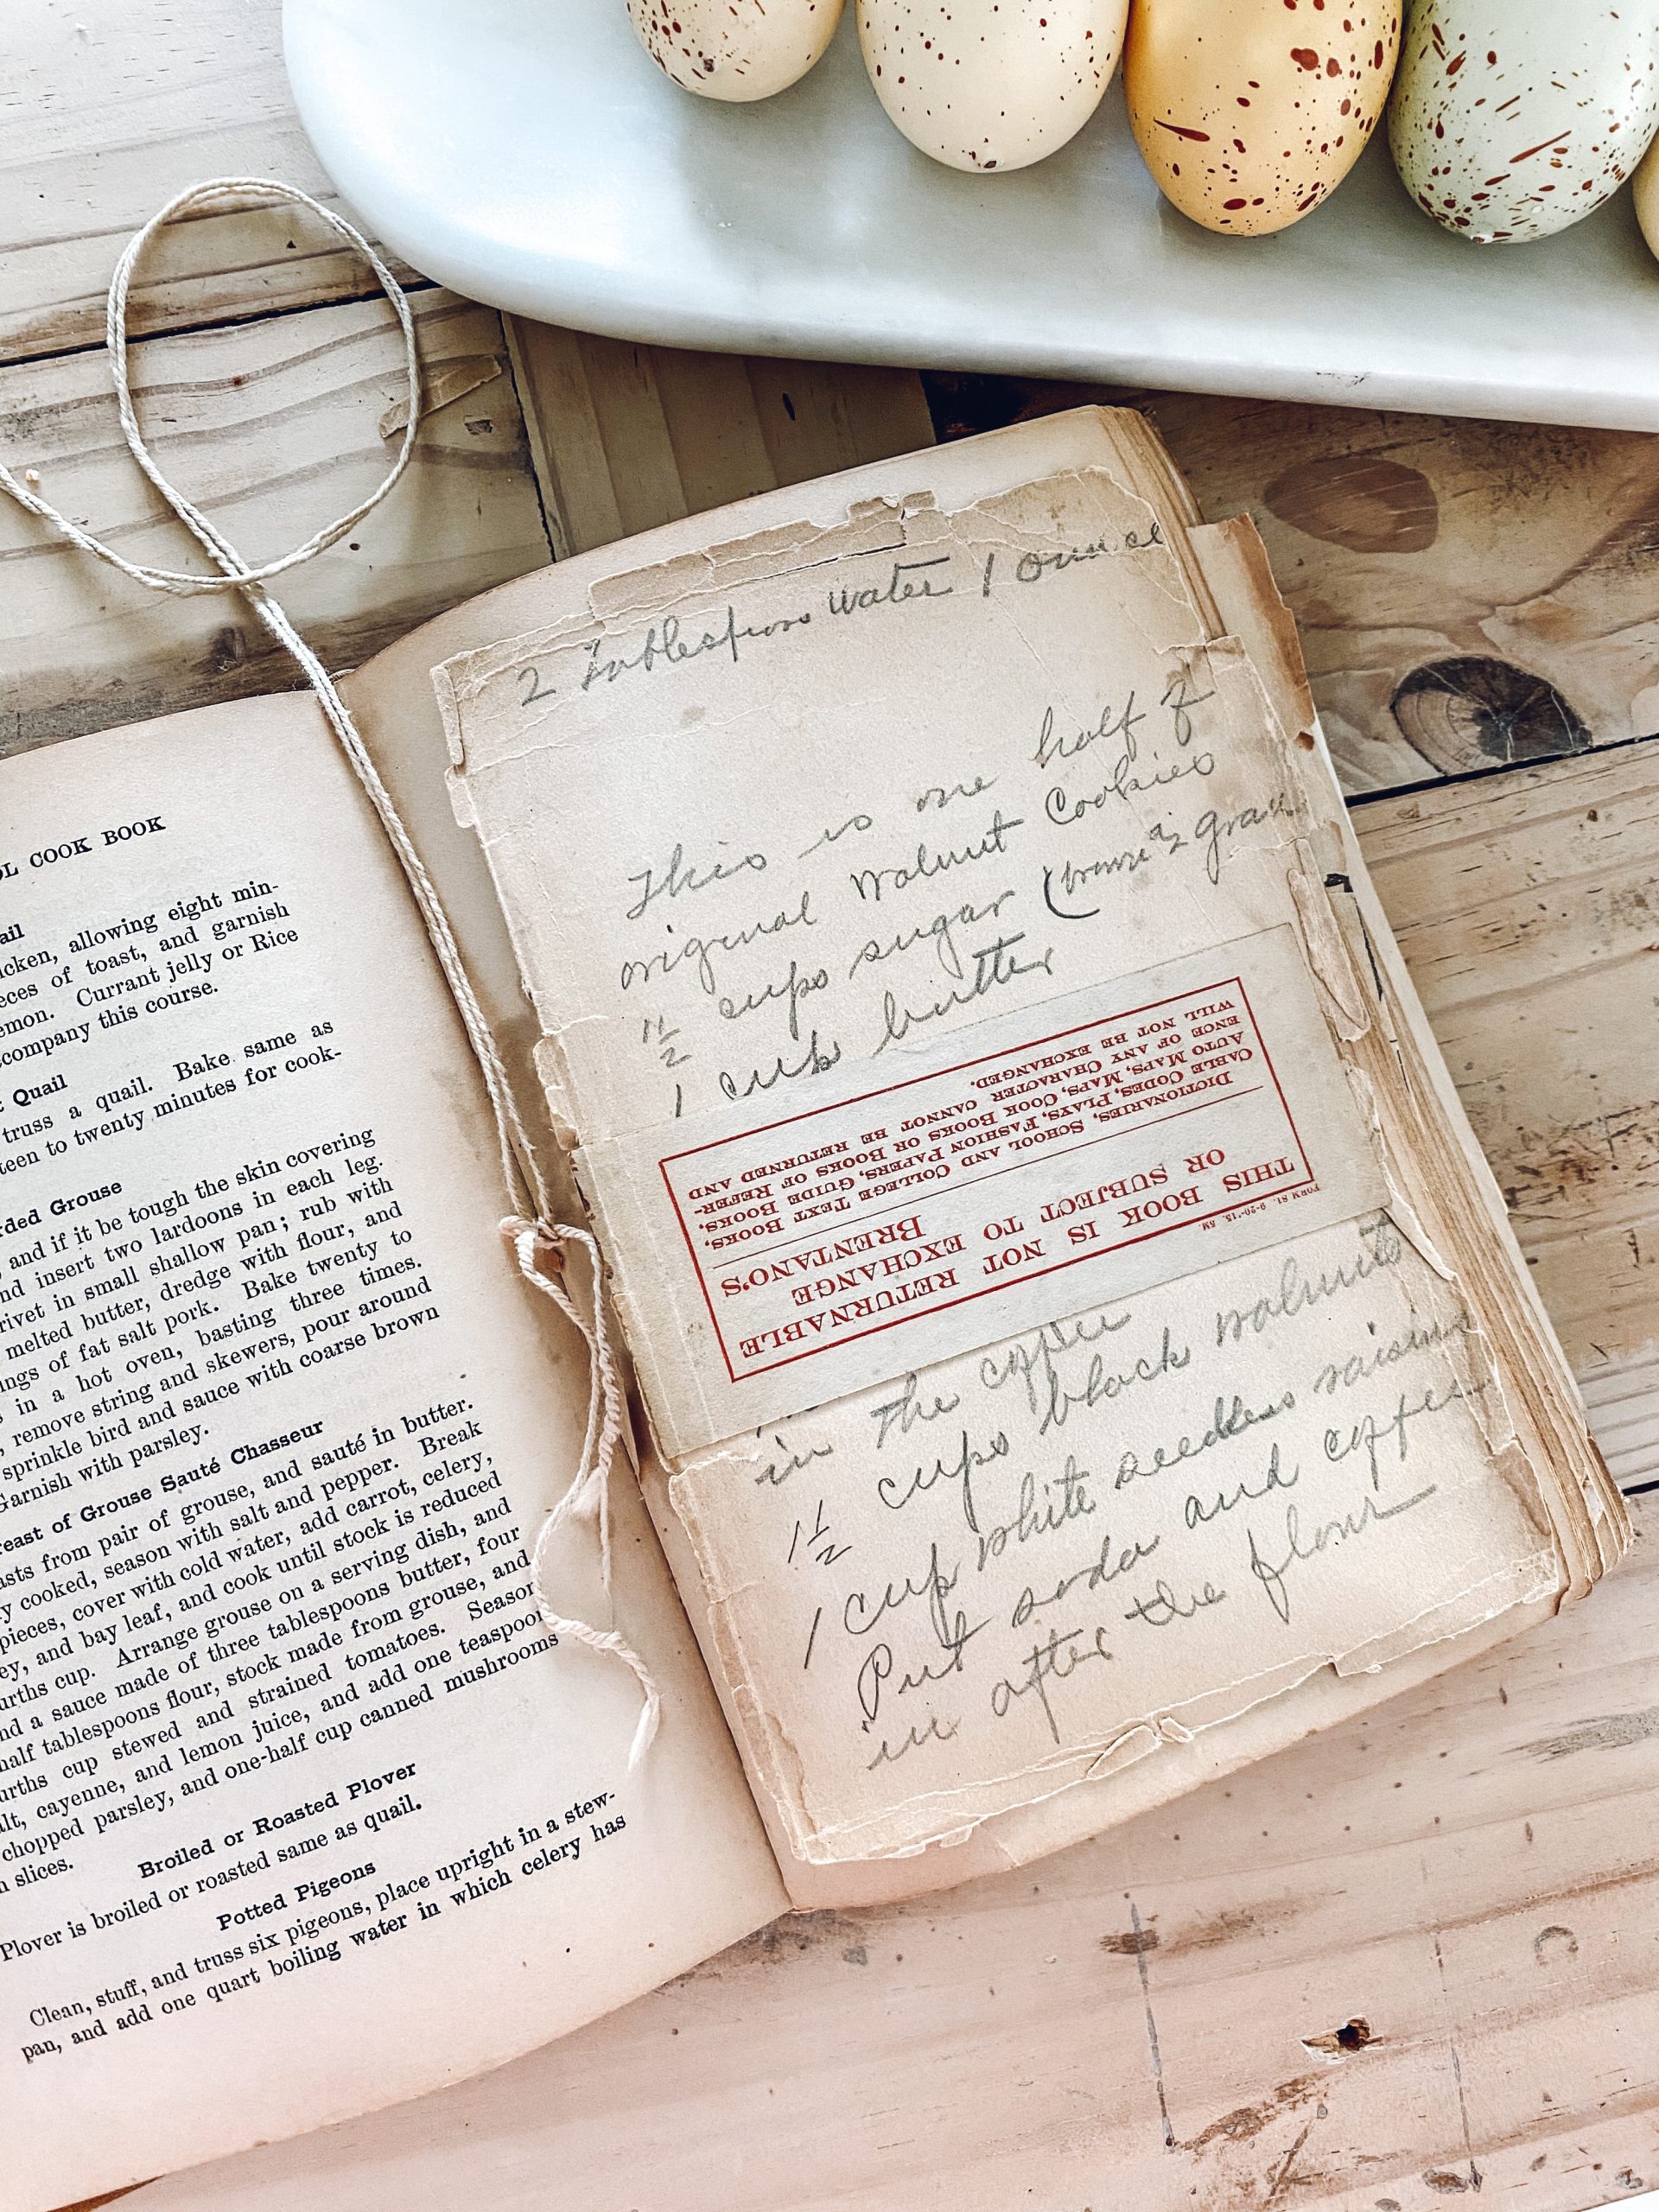 OL COOK BOOK
ail
icken, allowing eight min-
eces of toast, and garnish
emon. Currant jelly or Rice
ccompany this course.
t Quail
truss a quail. Bake same as
teen to twenty minutes for cook-
ded Grouse
, and if it be tough the skin covering
nd insert two lardoons in each leg.
rivet in small shallow pan; rub with
melted butter, dredge with flour, and
ings of fat salt pork. Bake twenty to
s in a hot oven, basting three times.
, remove string and skewers, pour around
sprinkle bird and sauce with coarse brown
Garnish with parsley.
reast of Grouse Sauté Chasseur
asts from pair of grouse, and sauté in butter.
y cooked, season with salt and pepper. Break
pieces, cover with cold water, add carrot, celery,
ey, and bay leaf, and cook until stock is reduced
urths cup. Arrange grouse on a serving dish, and
nd a sauce made of three tablespoons butter, four
half tablespoons flour, stock made from grouse, and
urths cup stewed and strained tomatoes. Season
alt, cayenne, and lemon juice, and add one teaspoon
chopped parsley, and one-half cup canned mushrooms
n slices.
Broiled or Roasted Plover
Plover is broiled or roasted same as quail.
Potted Pigeons
Clean, stuff, and truss six pigeons, place upright in a stew-
pan, and add one quart boiling water in which celery has
2 Tablespoons water 1 ounce
This is one half of
original Walnut Cookies
1 1/2 cups sugar (
1 cup butter
FORM 81. 9-20-'15. 5M
THIS BOOK IS NOT RETURNABLE
OR SUBJECT TO EXCHANGE
BRENTANO'S
DICTIONARIES, SCHOOL AND COLLEGE TEXT BOOKS,
CABLE CODES, PLAYS, FASHION PAPERS, GUIDE BOOKS,
AUTO MAPS, MAPS, COOK BOOKS OR BOOKS OF REFER-
ENCE OF ANY CHARACTER CANNOT BE RETURNED AND
WILL NOT BE EXCHANGED.
in the coffee
1 1/2 cups black walnuts
1 cup white seedless raisins
Put soda and coffee
in after the flour